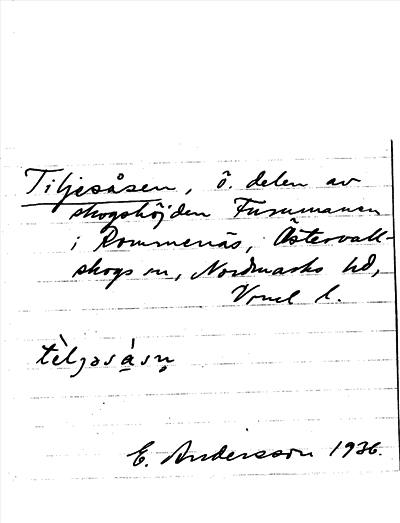 Tiljesåsen, ö. delen av
skogshöjden Furumanen
i Rommenäs, Östervall-
skogs sn, Nordmarks hd,
Vrml l.
tèljasåsn̥
E. Andersson 1936.